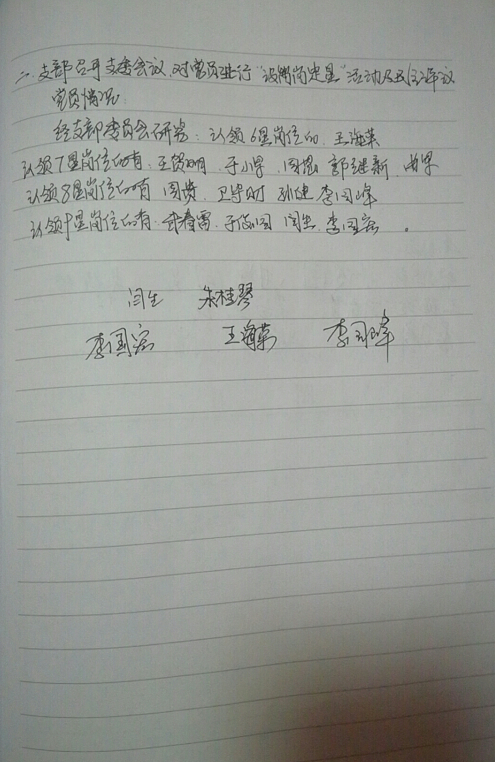 二、支部召开支委会议,对党员进行“设岗定星”活动及民主评议
党员情况:
经支部委员会研究:认领6星岗位的、王海英
认领7星岗位的有、王贺明、于小军、郭继新、
认领8星岗位的有 周 、卫 、孙建、李国峰
认领十星岗位的有: 、闫生、李国宏。
闫生 朱桂琴
李国宏 王海英 李国峰